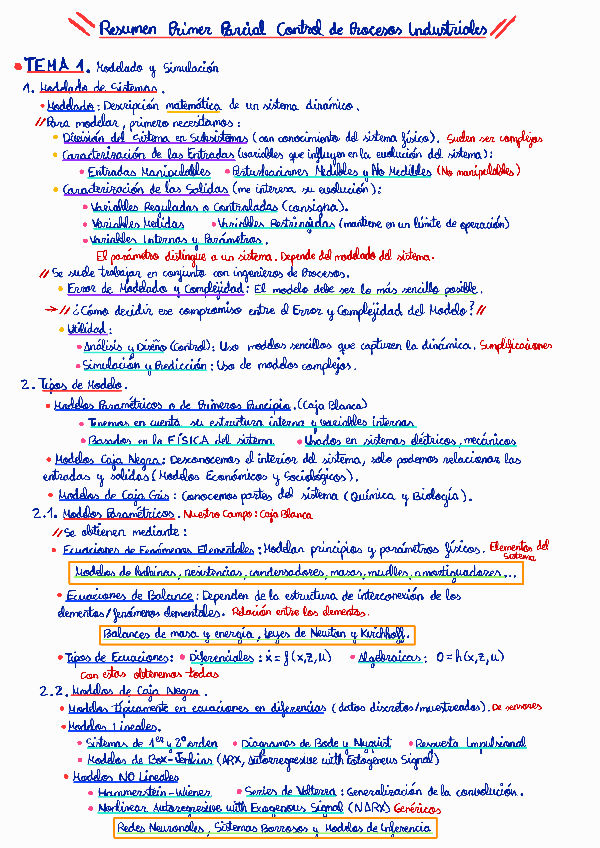 Resumen Primer Parcial Control de Procesos Industriales
TEMA 1. Modelado y Simulación
1. Modelado de Sistemas.
• Modelado: Descripción matemática de un sistema dinámico.
// Para modelar, primero necesitamos:
• División del Sistema en Subsistemas (con conocimiento del sistema físico). Suelen ser complejos
• Caracterización de las Entradas (variables que influyen en la evolución del sistema):
• Entradas Manipulables • Perturbaciones Medibles y No Medibles (No manipulables)
• Caracterización de las Salidas (me interesa su evolución):
• Variables Reguladas o Controladas (consigna).
• Variables Medidas • Variables Restringidas (mantiene en un límite de operación)
• Variables Internas y Parámetros.
El parámetro distingue a un sistema. Depende del modelado del sistema.
// Se suele trabajar en conjunto con ingenieros de Procesos.
• Error de Modelado y Complejidad: El modelo debe ser lo más sencillo posible.
→ // ¿Cómo decidir ese compromiso entre el Error y Complejidad del Modelo? //
• Utilidad:
• Análisis y Diseño (Control): Uso modelos sencillos que capturen la dinámica. Simplificaciones
• Simulación y Predicción: Uso de modelos complejos.
2. Tipos de Modelo.
• Modelos Paramétricos o de Primeros Principio. (Caja Blanca)
• Tenemos en cuenta su estructura interna y variables internas
• Basados en la FÍSICA del sistema • Usados en sistemas eléctricos, mecánicos
• Modelos Caja Negra: Desconocemos el interior del sistema, solo podemos relacionar las
entradas y salidas (Modelos Económicos y Sociológicos).
• Modelos de Caja Gris: Conocemos partes del sistema (Química y Biología).
2.1. Modelos Paramétricos. Nuestro Campo: Caja Blanca
// Se obtienen mediante:
• Ecuaciones de Fenómenos Elementales: Modelan principios y parámetros físicos. Elementos del
sistema
Modelos de bobinas, resistencias, condensadores, masas, muelles, amortiguadores...
• Ecuaciones de Balance: Dependen de la estructura de interconexión de los
elementos/fenómenos elementales. Relación entre los elementos.
Balances de masa y energía, Leyes de Newton y Kirchhoff.
• Tipos de Ecuaciones: • Diferenciales: ẋ = f(x,z,u) • Algebraicas: 0 = h(x,z,u)
Con estas obtenemos todas
2.2. Modelos de Caja Negra.
• Modelos típicamente en ecuaciones en diferencias (datos discretos/muestreados). De sensores
• Modelos Lineales.
• Sistemas de 1er y 2º orden • Diagramas de Bode y Nyquist • Respuesta Impulsional
• Modelos de Box-Jenkins (ARX, Autorregresive with Exogeneus Signal)
• Modelos NO Lineales
• Hammerstein-Wiener • Series de Volterra: Generalización de la convolución.
• Nonlinear Autoregresive with Exogenous Signal (NARX) Genéricos
Redes Neuronales, Sistemas Borrosos y Modelos de Inferencia